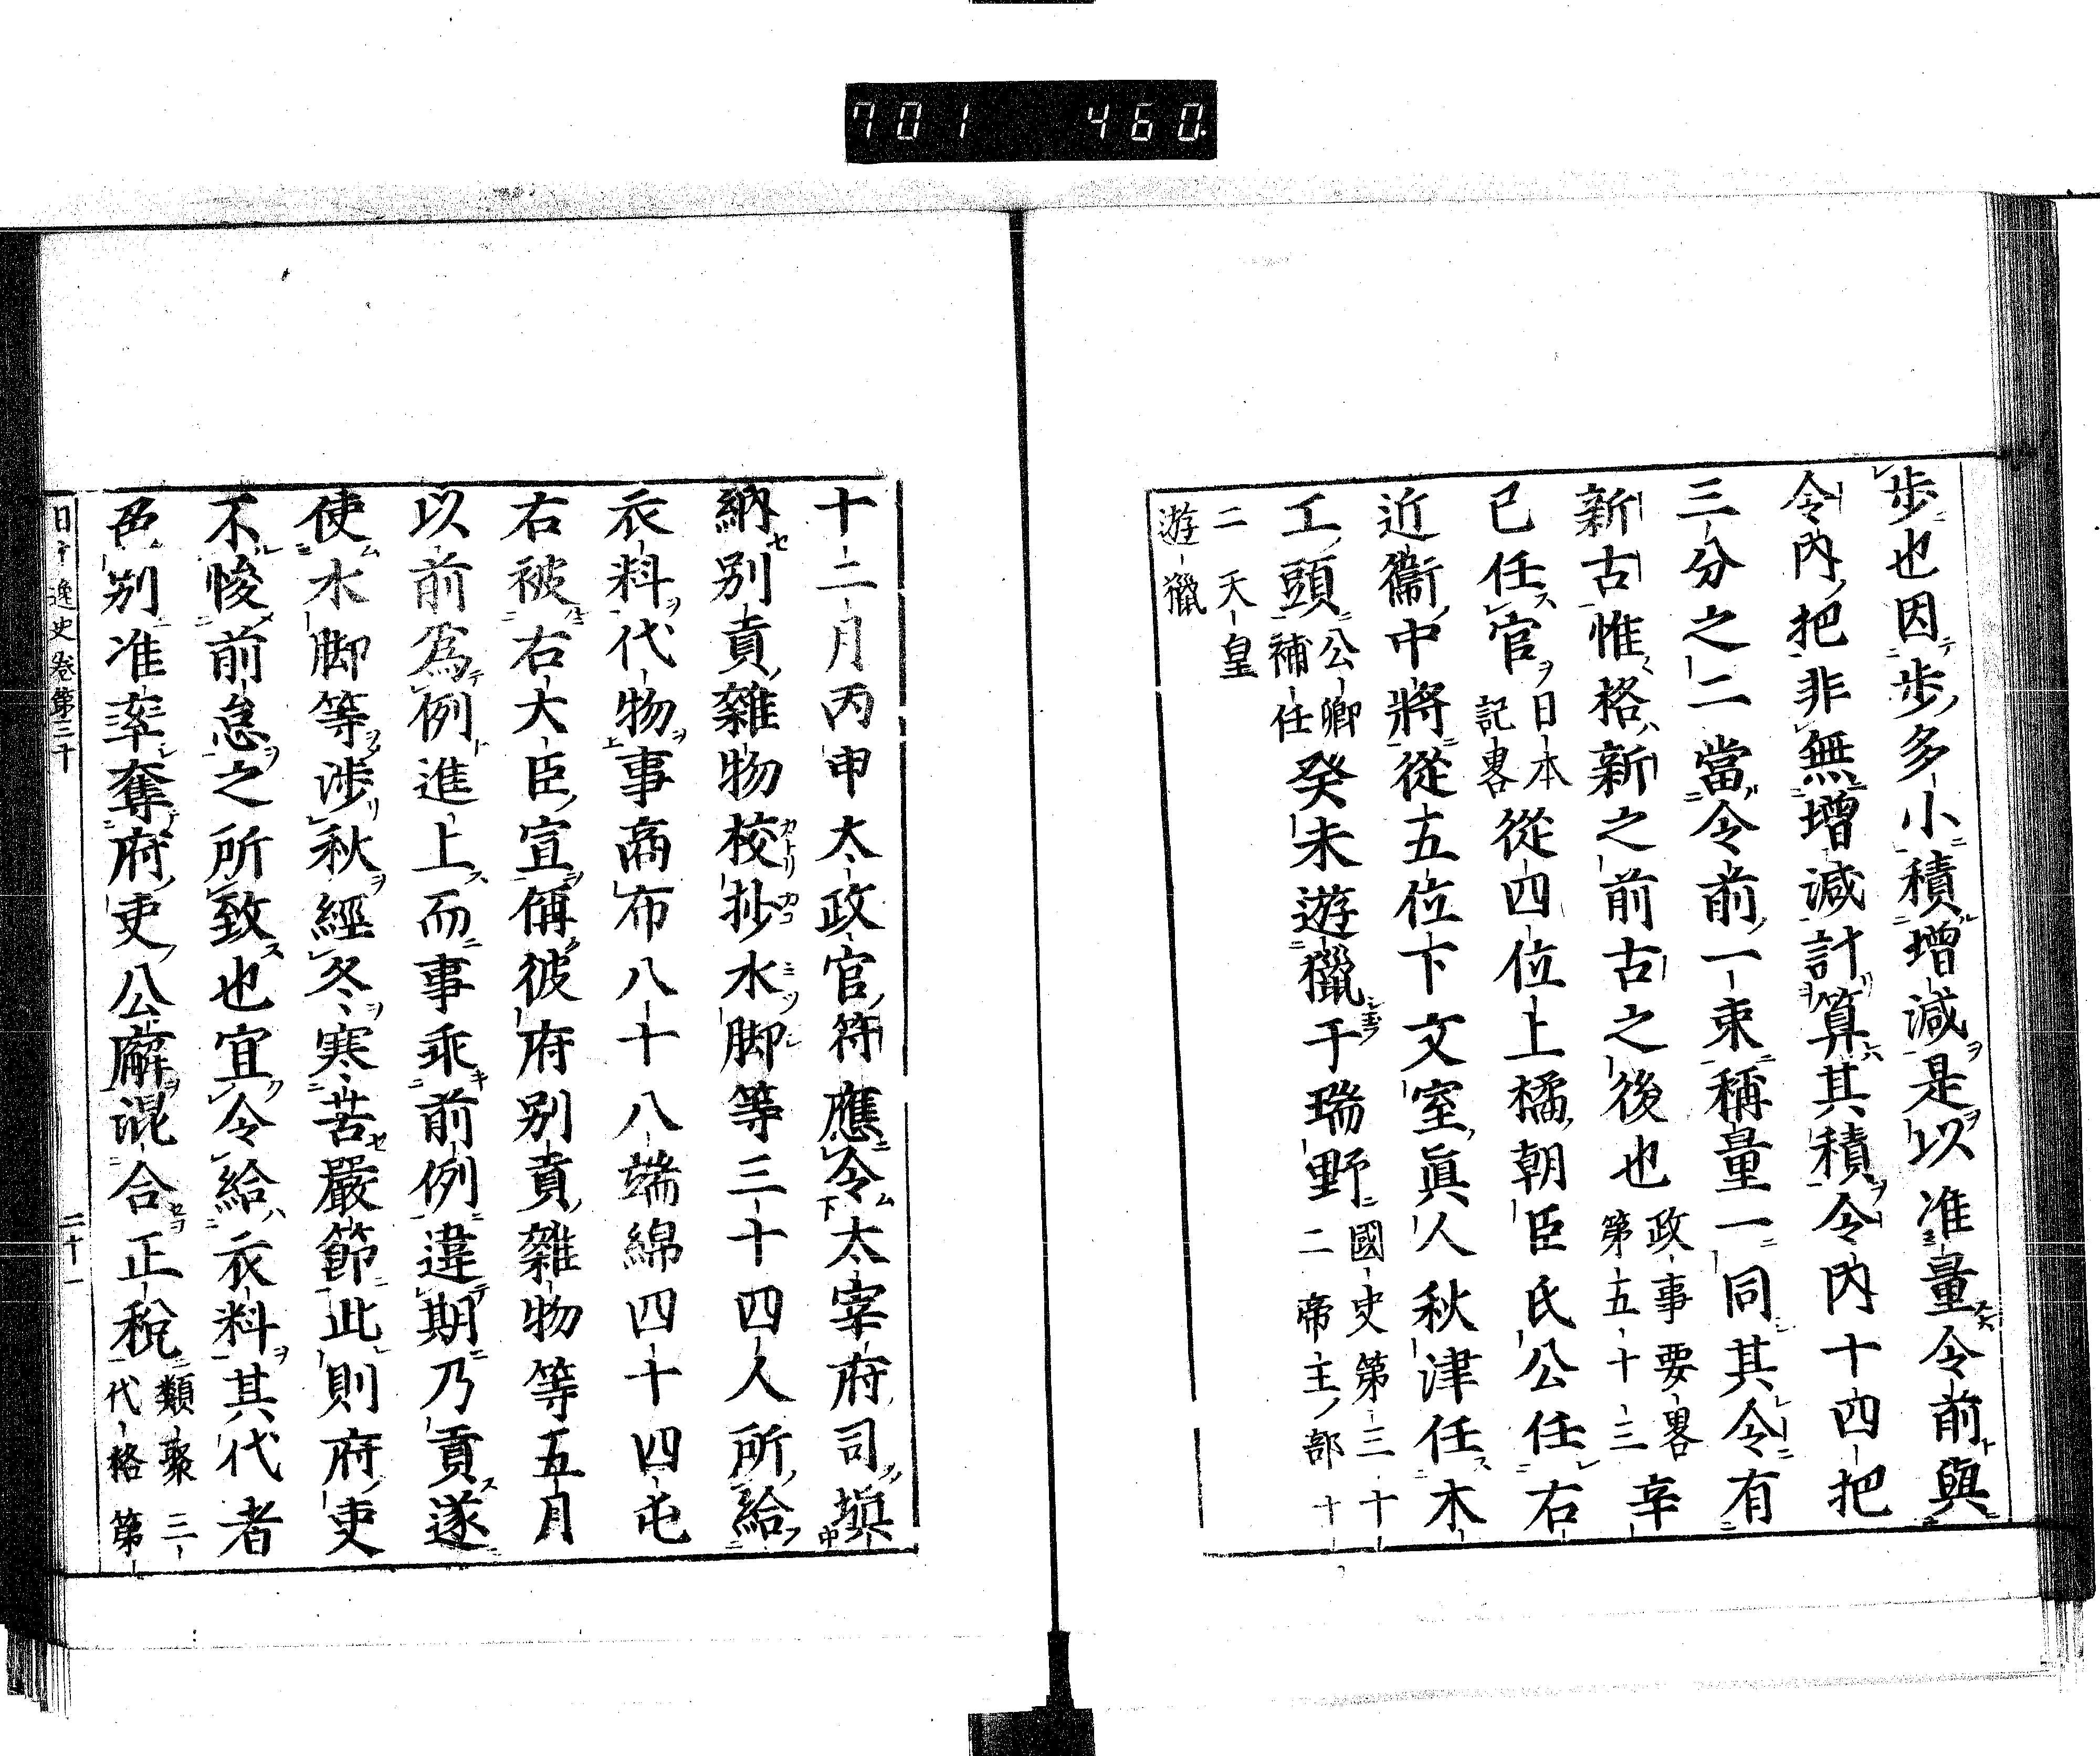 701 460
歩也因歩多小積增減是以准量令前與
令內把非無增減計算其積令內十四把
三分之二當令前一束稱量一同其令有
新古惟格新之前古之後也政事要畧第五十三辛
巳任官日本記畧從四位上橘朝臣氏公任右
近衞中將從五位下文室眞人秋津任木
工頭公卿補任癸未遊獵于瑞野國史第三十二帝主部十
二天皇遊獵
十二月丙申太政官符應令太宰府司填
納別貢雜物校抄水脚等三十四人所給
衣料代物事商布八十八端綿四十四屯
右被右大臣宣偁彼府別貢雜物等五月
以前為例進上而事乖前例違期乃貢遂
使水脚等渉秋經冬寒苦嚴節此則府吏
不悛前怠之所致也宜令給衣料其代者
色別准率奪府吏公廨混合正稅類聚三代格第一
逸史卷第三十 二十一